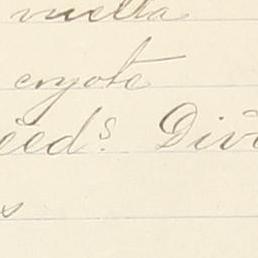 vuelta
coyote
eeds. Div
s